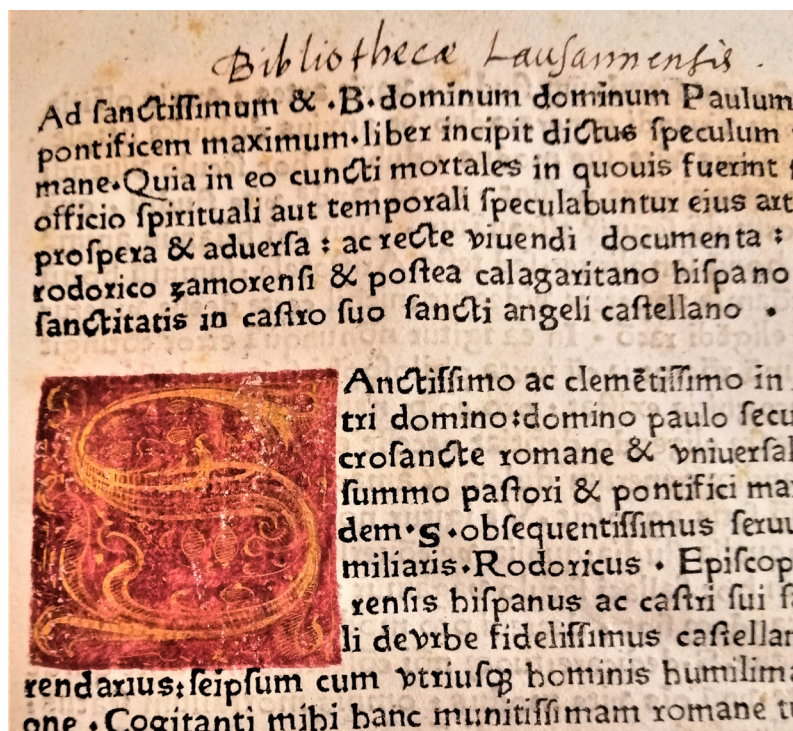 Bibliothecæ Lauſannenſis.
Ad ſanctiſſimum & .B.dominum dominum Paulum
pontificem maximum.liber incipit dictus ſpeculum
mane.Quia in eo cuncti mortales in quouis fuerint
officio ſpirituali aut temporali ſpeculabuntur eius art
proſpera & aduerſa : ac recte viuendi documenta :
rodorico zamorenſi & poſtea calagaritano hiſpano
ſanctitatis in caſtro ſuo ſancti angeli caſtellano .
SAnctiſſimo ac clemētiſſimo in
tri domino:domino paulo ſecu
croſancte romane & vniuerſal
ſummo paſtori & pontifici ma
dem.s.obſequentiſſimus ſeruu
miliaris.Rodoricus . Epiſcop
renſis hiſpanus ac caſtri ſui ſa
li devrbe fideliſſimus caſtellan
rendarius:ſeipſum cum vtriuſqꝫ hominis humilima
one .Cogitanti mihi hanc munitiſſimam romane tu